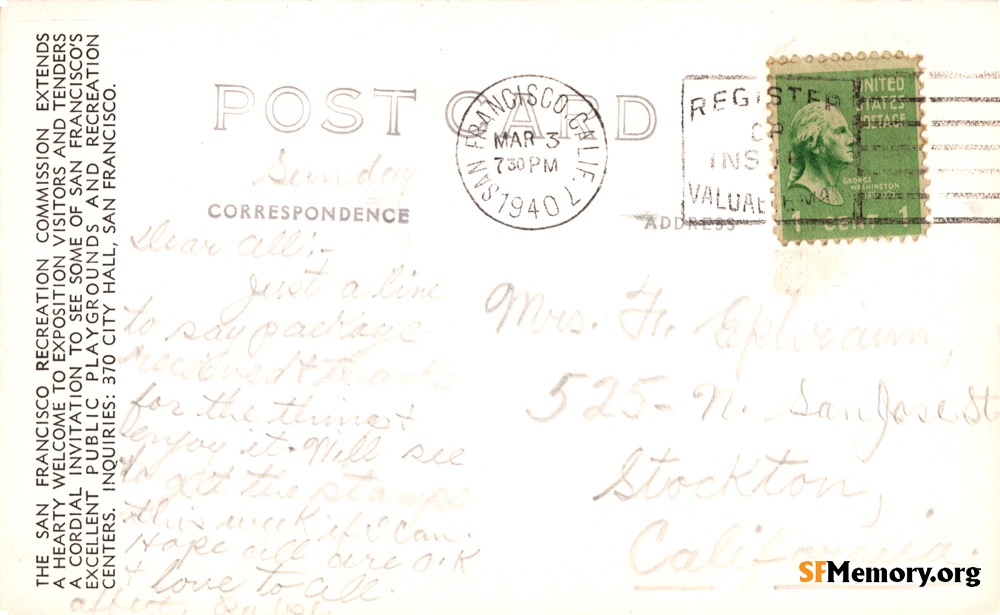 THE SAN FRANCISCO RECREATION COMMISSION EXTENDS
A HEARTY WELCOME TO EXPOSITION VISITORS AND TENDERS
A CORDIAL INVITATION TO SEE SOME OF SAN FRANCISCO'S
EXCELLENT PUBLIC PLAYGROUNDS AND RECREATION
CENTERS. INQUIRIES: 370 CITY HALL, SAN FRANCISCO.
POST CARD
SAN FRANCISCO, CALIF. 7
MAR 3
7 30 PM
1940
REGISTER
OR
INSURE
VALUABLE MAIL
UNITED
STATES
POSTAGE
GEORGE
WASHINGTON
1 CENT 1
CORRESPONDENCE
ADDRESS
Sunday
Dear all:-
Just a line
to say package
received & thanks
for the things &
enjoy it. Will see
to get the stamps
this week if I can.
Hope all are O.K
& love to all.
Mrs. H. Ephraim,
525- N. San Jose St
Stockton,
California.
SFMemory.org